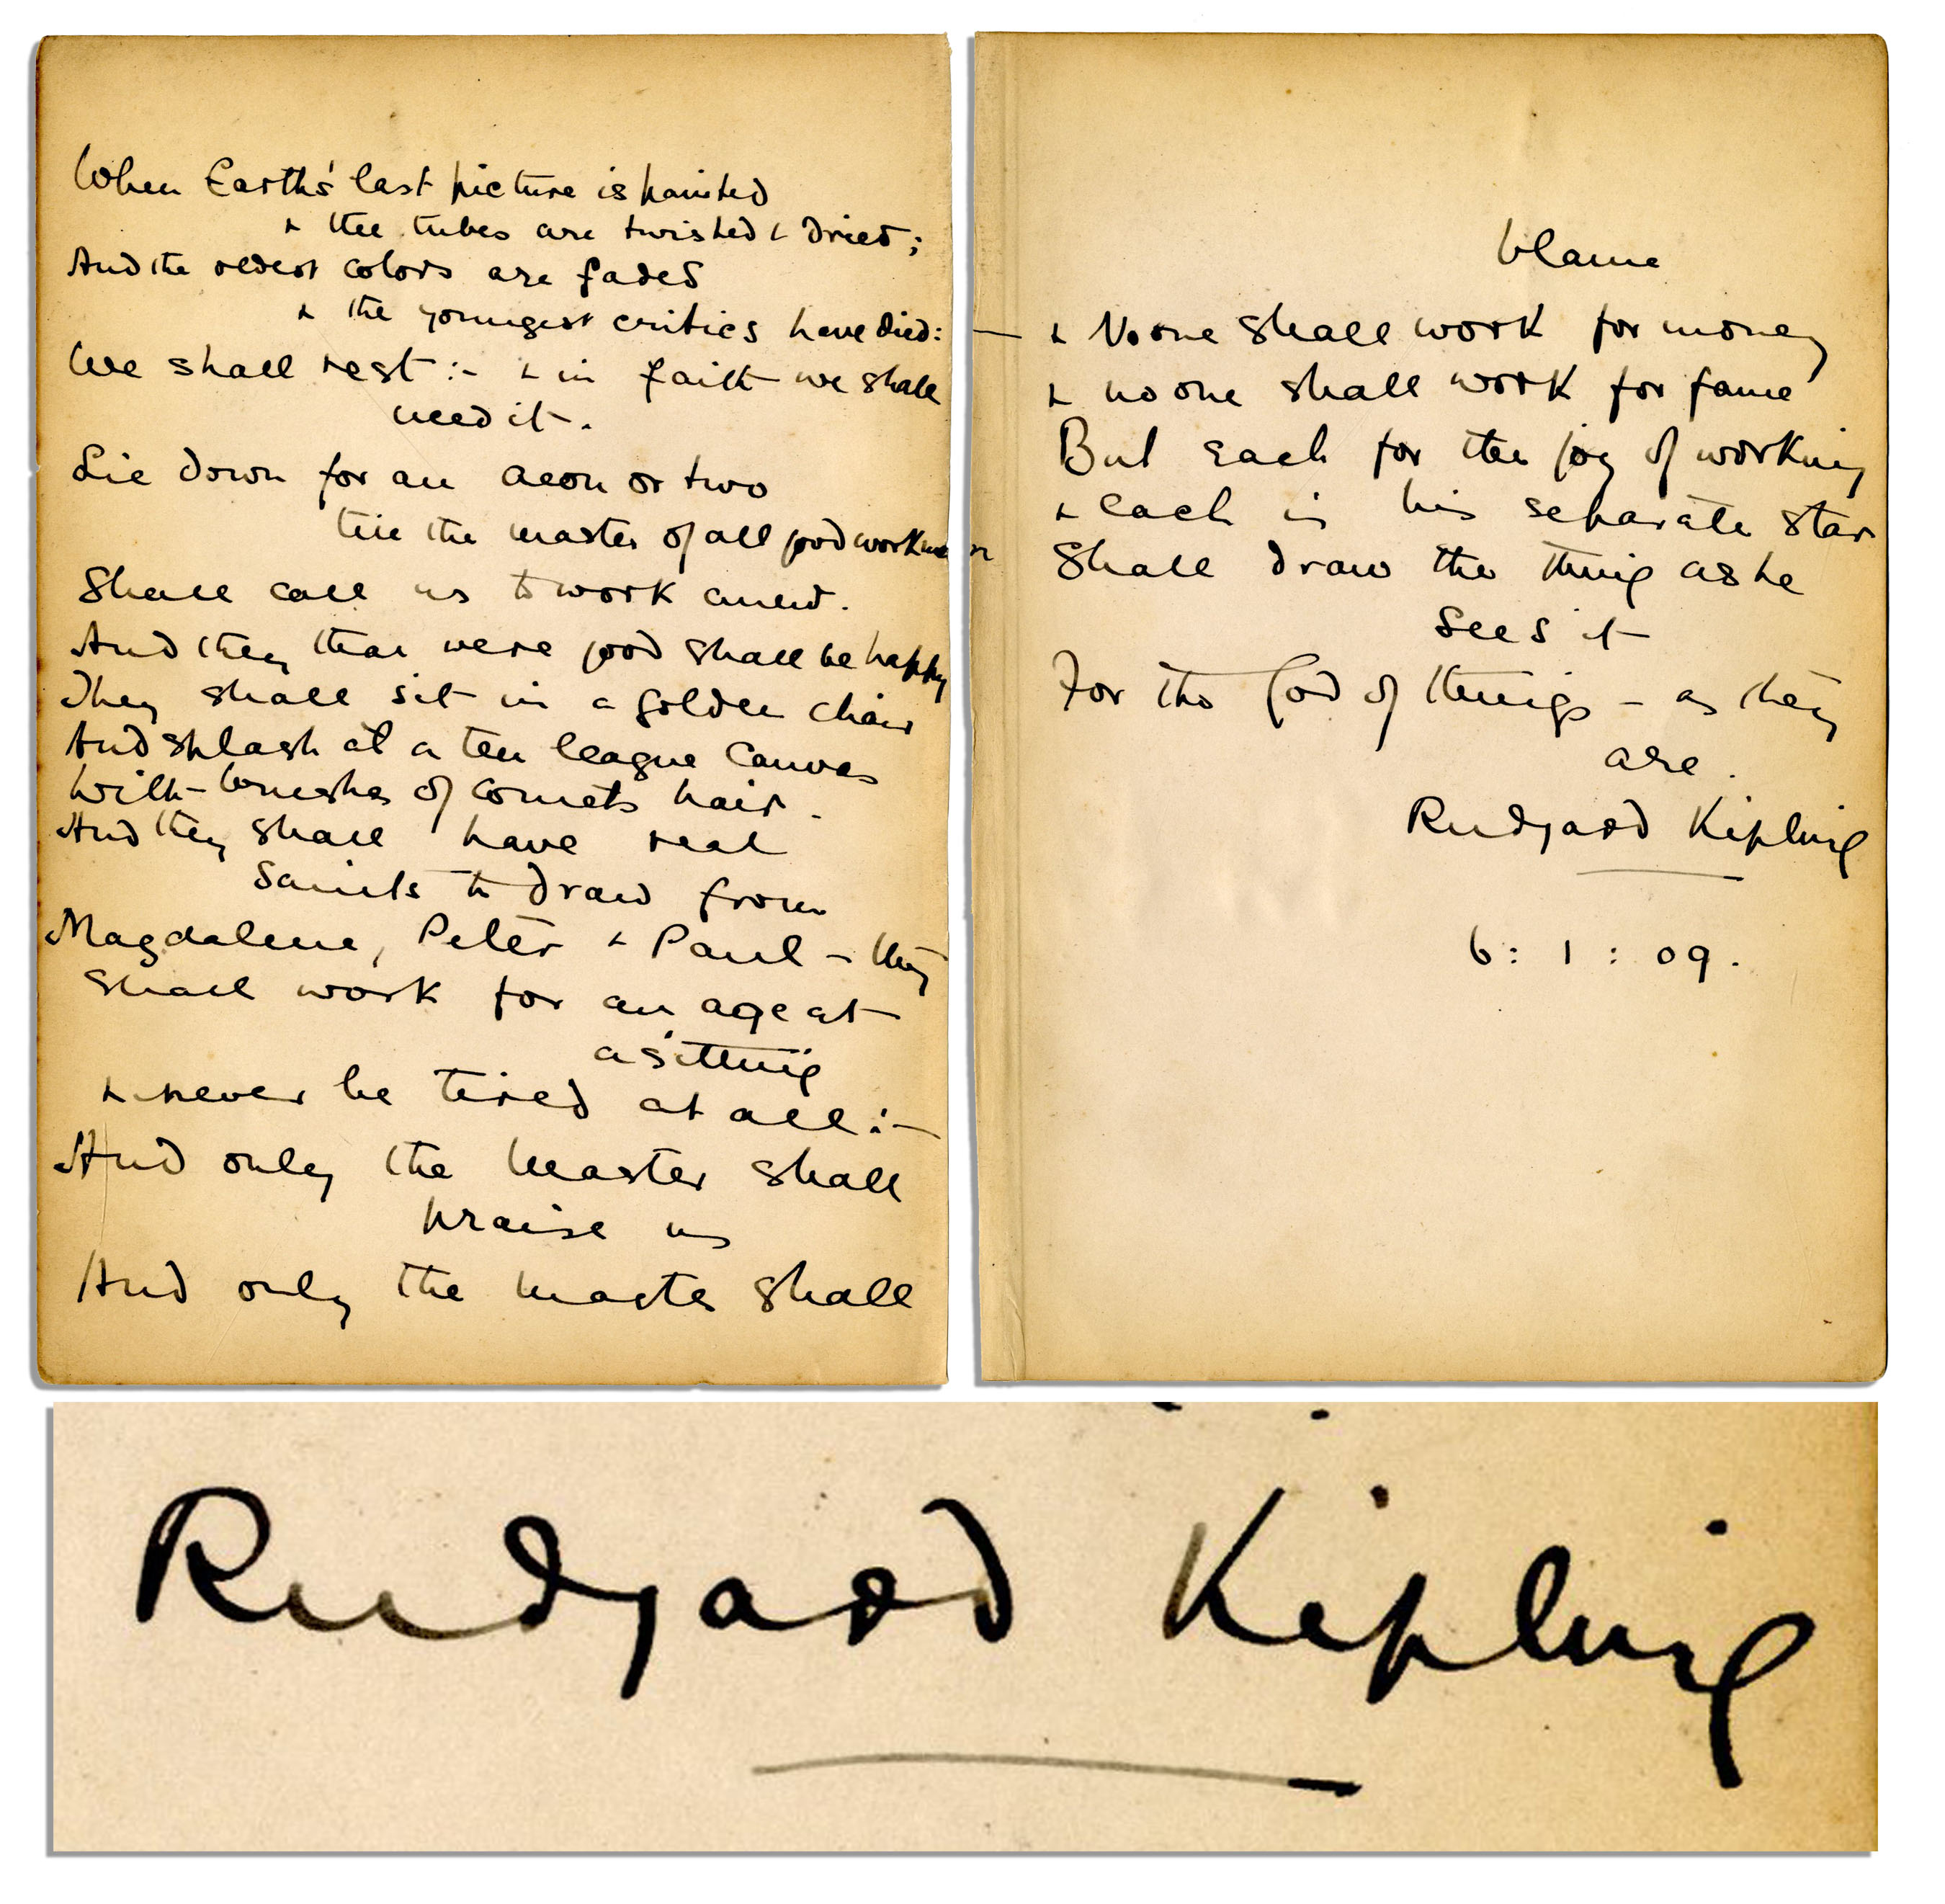 When Earth's last picture is painted
& the tubes are twisted & dried;
And the oldest colors are faded
& the youngest critics have died:
We shall rest :- & in faith we shall
need it.
Lie down for an aeon or two
till the master of all good workmen
Shall call us to work anew.
And they that were good shall be happy
They shall sit in a golden chair
And splash at a ten league canvas
With brushes of comets hair.
And they shall have real
Saints to draw from
Magdalene, Peter & Paul - they
shall work for an age at
a sitting
& never be tired at all :-
And only the Master shall
praise us
And only the master shall
blame
- & No one shall work for money
& no one shall work for fame
But each for the joy of working
& each in his separate star
Shall draw the thing as he
sees it
For the God of things - as they
are.
Rudyard Kipling
6 : 1 : 09.
Rudyard Kipling